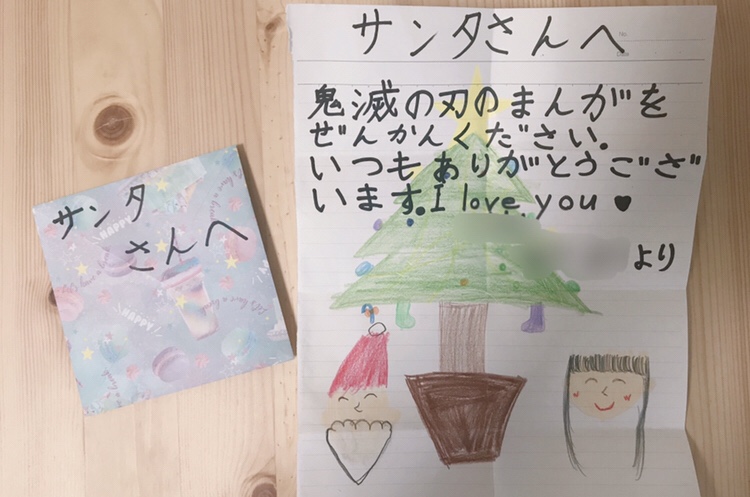 サンタさんへ
鬼滅の刃のまんがを
ぜんかんください。
いつもありがとうござ
います。I love you ♥
より
サンタ
さんへ
HAPPY
HAPPY